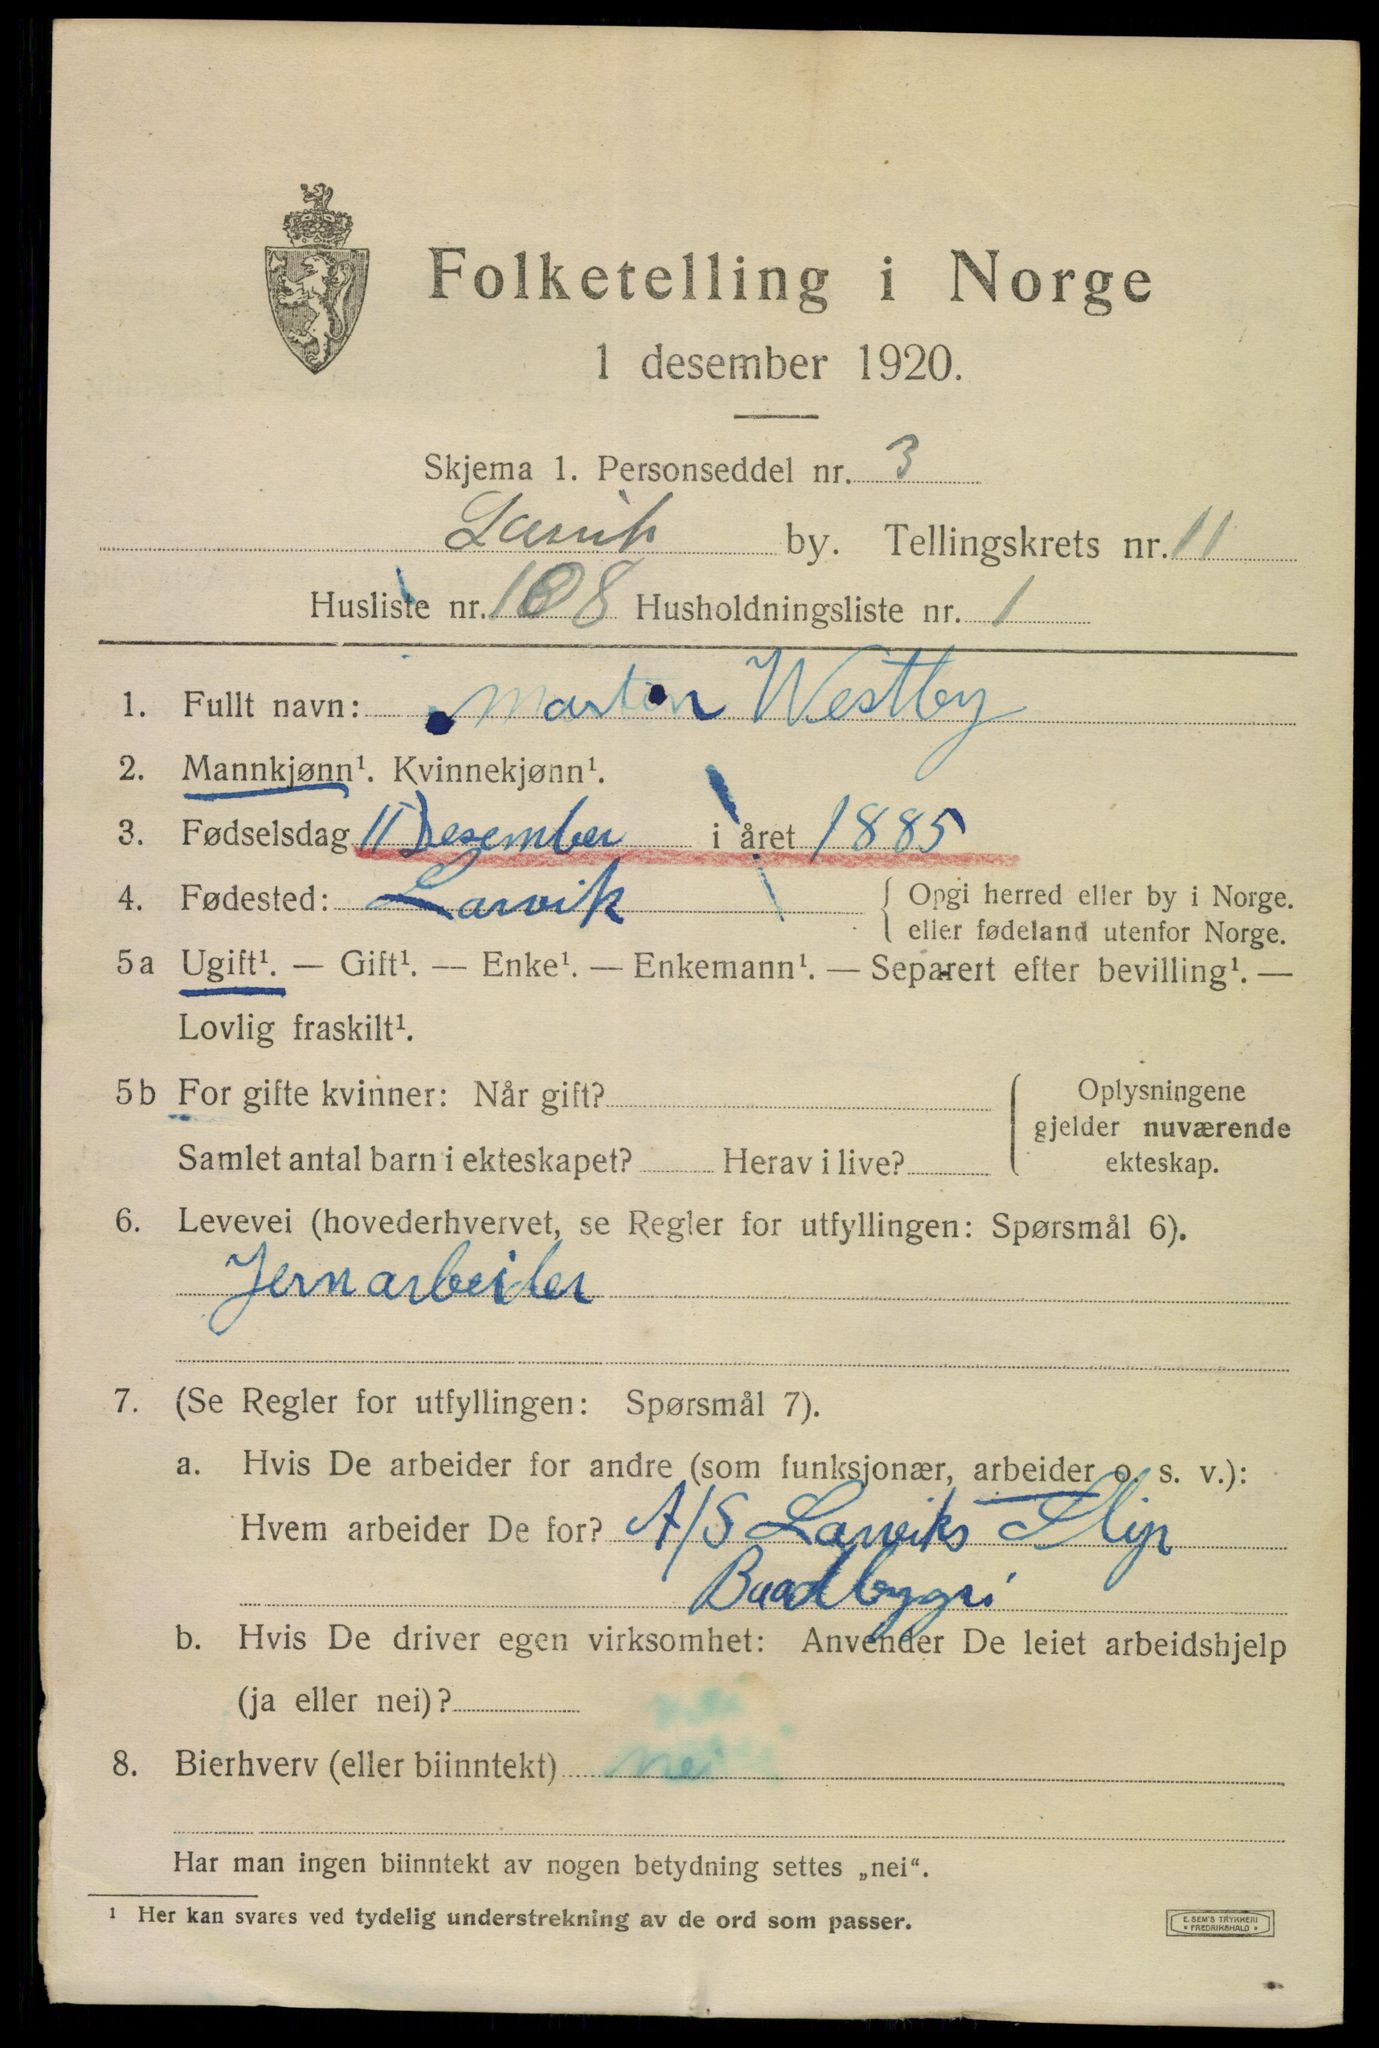 Folketelling i Norge
1 desember 1920.
Skjema 1. Personseddel nr. 3
Larvik by. Tellingskrets nr. 11
Husliste nr. 108 Husholdningsliste nr. 1
1. Fullt navn: Martin Westby
2. Mannkjønn¹. Kvinnekjønn¹.
3. Fødselsdag 11 Desember i året 1885
4. Fødested: Larvik { Opgi herred eller by i Norge.
eller fødeland utenfor Norge.
5a Ugift¹. — Gift¹. — Enke¹. — Enkemann¹. — Separert efter bevilling¹. —
Lovlig fraskilt¹.
5b For gifte kvinner: Når gift?
Samlet antal barn i ekteskapet? Herav i live?
Oplysningene
gjelder nuværende
ekteskap.
6. Levevei (hovederhvervet, se Regler for utfyllingen: Spørsmål 6).
Jernarbeider
7. (Se Regler for utfyllingen: Spørsmål 7).
a. Hvis De arbeider for andre (som funksjonær, arbeider o. s. v.):
Hvem arbeider De for? A/S Larviks Slip
Baadbyggri
b. Hvis De driver egen virksomhet: Anvender De leiet arbeidshjelp
(ja eller nei)?
nei
8. Bierhverv (eller biinntekt) nei
Har man ingen biinntekt av nogen betydning settes „nei“.
¹ Her kan svares ved tydelig understrekning av de ord som passer.
E. SEM'S TRYKKERI
* FREDRIKSHALD *